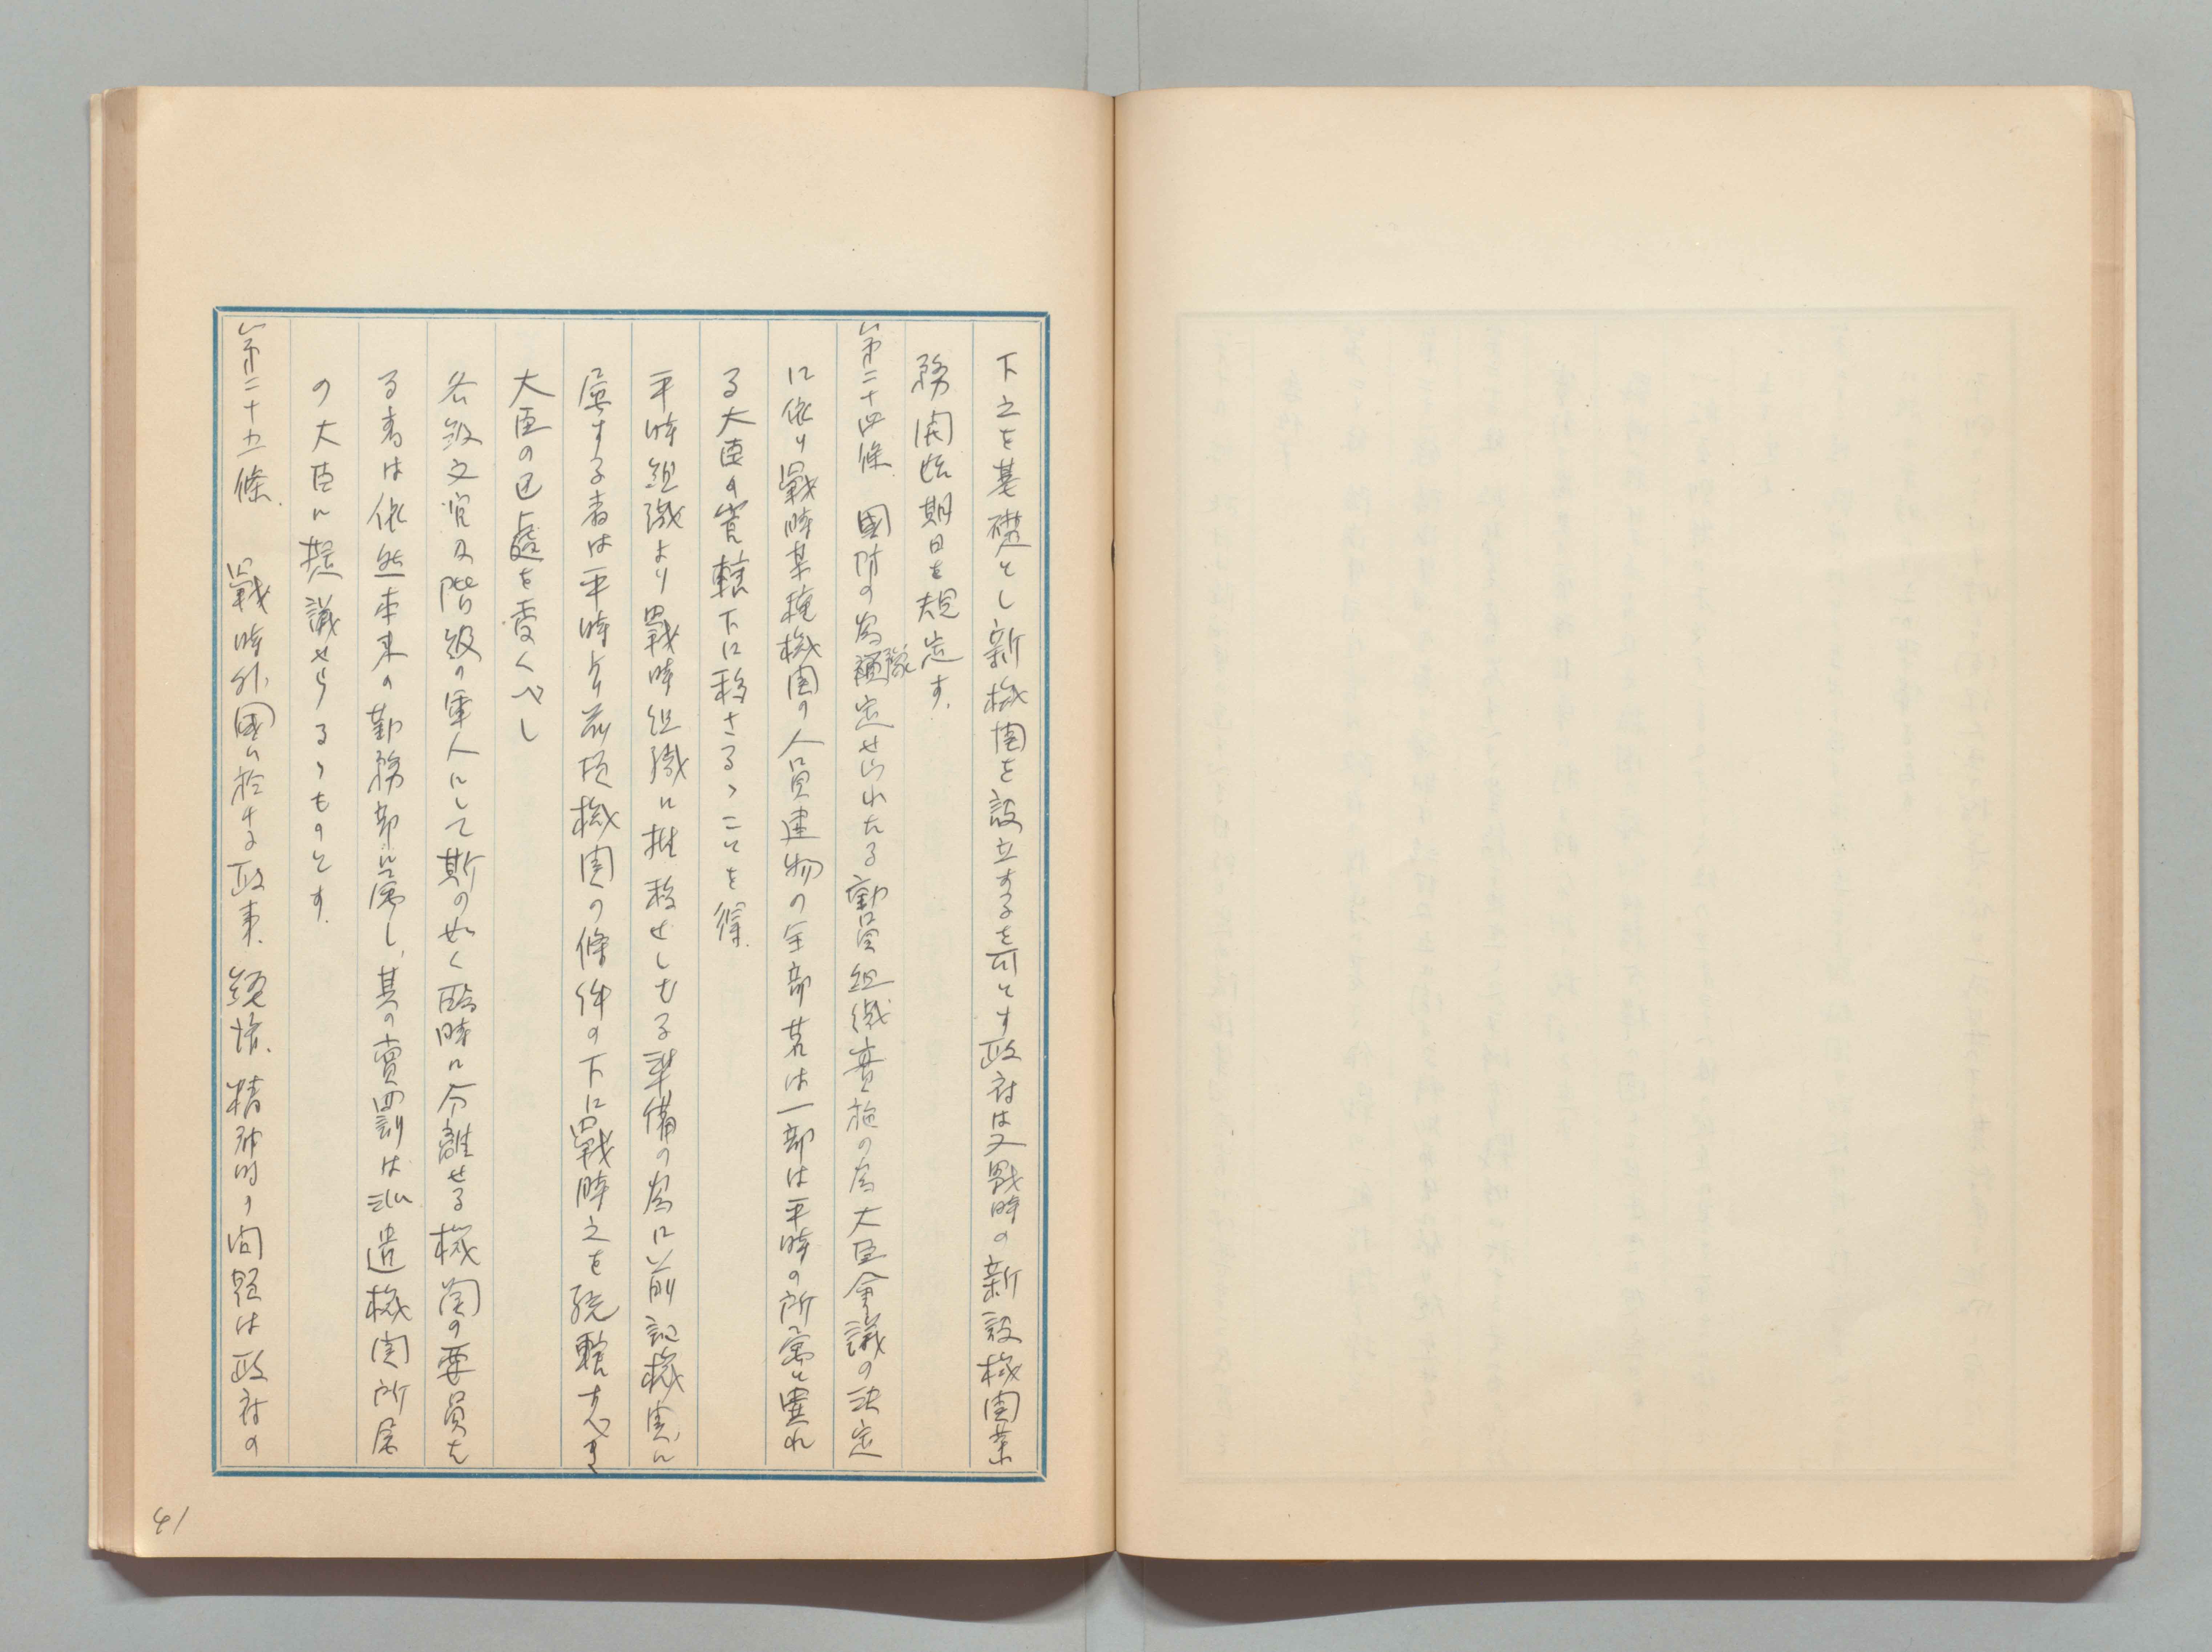 下之を基礎とし新機関を設立するを可とす政府は又戰時の新設機関業
務開始期日を規定す.
第二十四條. 國防の為豫定せられたる動員組織實施の為大臣會議の決定
に依り戰時某種機関の人員建物の全部若は一部は平時の所属と異れ
る大臣の管轄下に移さるゝことを得.
平時組織より戰時組織に推移せしむる準備の為に前記機関に
屬する者は平時より前項機関の條件の下に戰時之を統轄すべき
大臣の区處を受くべし
各級文官及階級の軍人にして斯の如く臨時に分離せる機関の要員た
る者は依然本来の勤務部に属し、其の賞罰は派遣機関所属
の大臣に提議せらるゝものとす.
第二十五條. 戰時外國に於ける政事、經濟、精神的ノ問題は政府の
41